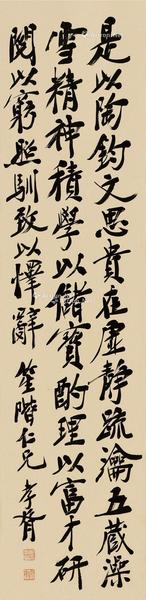 是以陶鈞文思貴在虛靜疏瀹五藏澡
雪精神積學以儲寶酌理以富才研
閱以窮照馴致以懌辭 笙階仁兄 孝胥